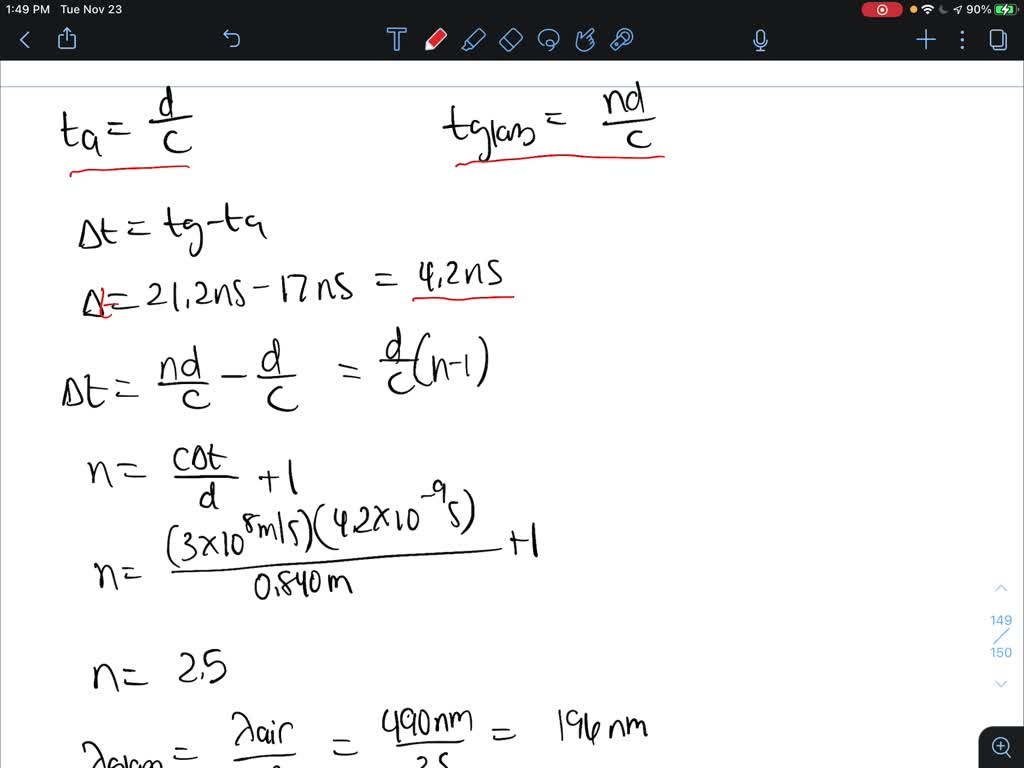 1:49 PM Tue Nov 23
90%
T
ta = d/c
tglass = nd/c
Δt = tg - ta
Δt = 21.2ns - 17ns = 4.2ns
Δt = nd/c - d/c = d/c (n-1)
n = cΔt/d + 1
n = (3×10^8 m/s)(4.2×10^-9 s)/0.840m + 1
149
150
n = 2.5
λglass = λair = 490nm/2.5 = 196nm